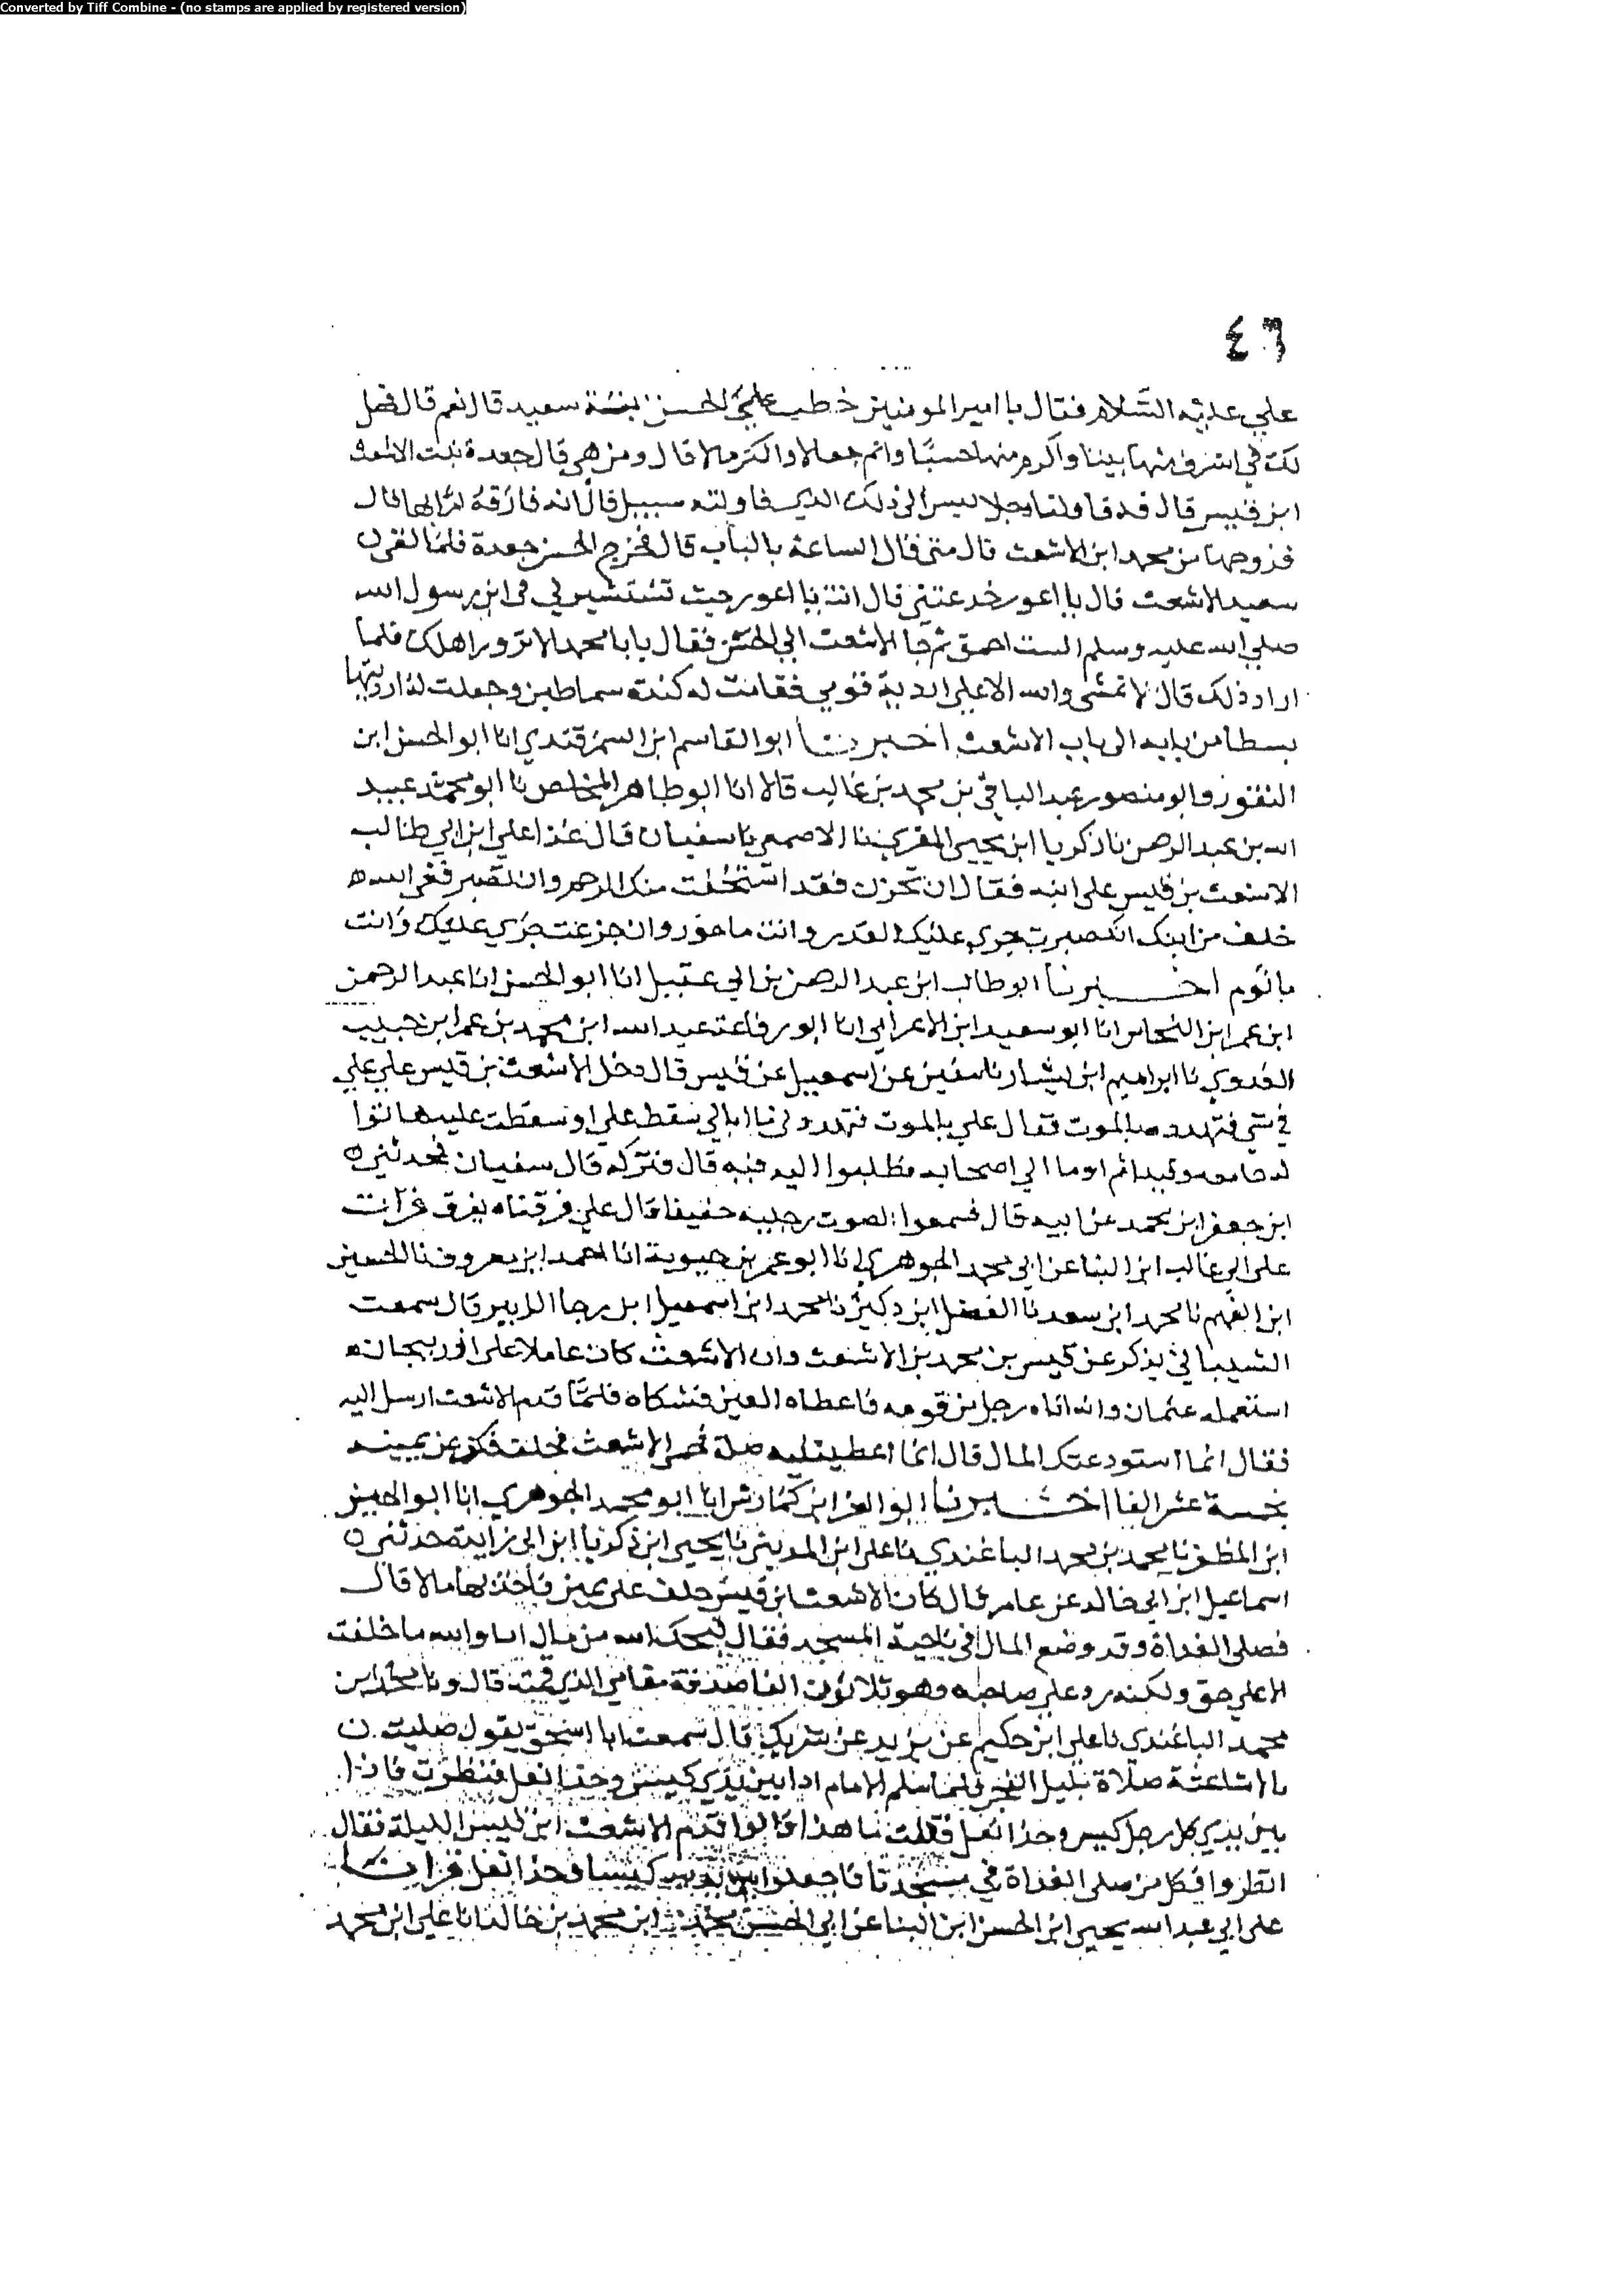 Converted by Tiff Combine - (no stamps are applied by registered version)
٤٦
علي عليه السلام فقال يا امير المومنين خطبت علي الحسن ابنة سعيد قال نعم قال فهل
لك في اشرف منها بيتا واكرم منها حسبا واتم جمالا واكثر مالا قال ومن هي قال جعدة بنت الاشعث
ابن قيس قال قد قاولنا رجلا ليس الى ذلك الذي قاولته سبيل قال انه فارقه ليرا بها قال
فزوجها من محمد ابن الاشعث قال متى قال الساعة بالباب قال فزوج الحسن جعدة فلما لقي
سعيد الاشعث قال يا اعور خدعتني قال انت يا اعور حيث تستشيرني في ابن رسول الله
صلي الله عليه وسلم الست احمق ثم جا الاشعث الي الحسن فقال يابا محمد الا تزور اهلك فلما
اراد ذلك قال لا تمشي والله الا علي اردية قومي فقامت له كندة سماطين وجعلت له ارديتها
بسطا من بابه الى باب الاشعث اخبرنا ابو القاسم ابن السمرقندي انا ابو الحسن ابن
النقور وابو منصور عبد الباقي بن محمد بن غالب قالا انا ابو طاهر المخلص نا ابو محمد عبيد
الله بن عبد الرحمن نا زكريا ابن يحيى المقري نا الاصمعي نا سفيان قال عزا علي ابن ابي طالب
الاشعث بن قيس على ابنه فقال ان تحزن فقد استحقت منك الرحم وان تصبر ففي الله
خلف من ابنك انك ان صبرت جرى عليك القدر وانت ماجور وان جزعت جرى عليك وانت
ماثوم اخبرنا ابو طالب ابن عبد الرحمن بن ابي عقيل انا ابو الحسن انا عبد الرحمن
ابن عمر ابن النحاس انا ابو سعيد ابن الاعرابي انا ابو رفاعة عبد الله ابن محمد بن عمر ابن حبيب
العدوي نا ابراهيم ابن بشار نا سفين عن اسمعيل عن قيس قال دخل الاشعث بن قيس على علي
في شي فتهدده بالموت فقال علي بالموت تهددوني ما ابالي سقط علي او سقطت عليه هاتوا
له جامعه وقيدا ثم اوما الي اصحابه فطلبوا اليه فيه قال فتركه قال سفيان فحدثني
ابن جعفر ابن محمد عن ابيه قال فسمعوا لصوت رجليه حفيفا قال علي فرقناه بفرق قرات
على ابي غالب ابن البنا عن ابي محمد الجوهري انا ابو عمر بن حيوية انا احمد ابن معروف نا الحسين
ابن الفهم نا محمد ابن سعد نا الفضل ابن دكين نا محمد ابن اسمعيل ابن رجا الزبير قال سمعت
الشيباني يذكر عن قيس بن محمد بن الاشعث وان الاشعث كان عاملا على اذربيجان
استعمله عثمان وانه اتاه رجل من قومه فاعطاه الفين فشكاه فلما قدم الاشعث ارسل اليه
فقال انما استودعتك المال قال انما اعطيتنيه صلة فحمي الاشعث فحلف فكفر عن يمينه
بخمسة عشر الفا اخبرنا ابو العز ابن كادش انا ابو محمد الجوهري انا ابو الحسين
ابن المظفر نا محمد بن محمد الباغندي نا علي ابن المديني نا يحيى ابن زكريا ابن ابي زايدة حدثني
اسماعيل ابن ابي خالد عن عامر قال كان الاشعث ابن قيس حلف على يمين فاخذ بها مالا قال
فصلى الغداة وقد وضع المال في ناحية المسجد فقال قبحك الله من مال اما والله ما حلفت
الا علي حق ولكنه رد على صاحبه وهو ثلاثون الفا صدقة مقامي الذي قمت قال ونا محمد ابن
محمد الباغندي نا علي ابن حكيم عن يزيد عن شريك قال سمعت ابا اسحق يقول صليت
بالاشاعثة صلاة بليل الفجر فلما سلم الامام اذا بين يدي كيس وحذا نعل فنظرت فاذا
بين يدي كل رجل كيس وحذا نعل فقلت ما هذا قالوا قدم الاشعث ابن قيس الليلة فقال
انظروا فكل من صلى الغداة في مسجدنا فاجعلوا بين يديه كيسا وحذا نعل قرات
على ابي عبد الله يحيى ابن الحسن ابن البنا عن ابي الحسن محمد ابن محمد بن خالد انا علي ابن محمد